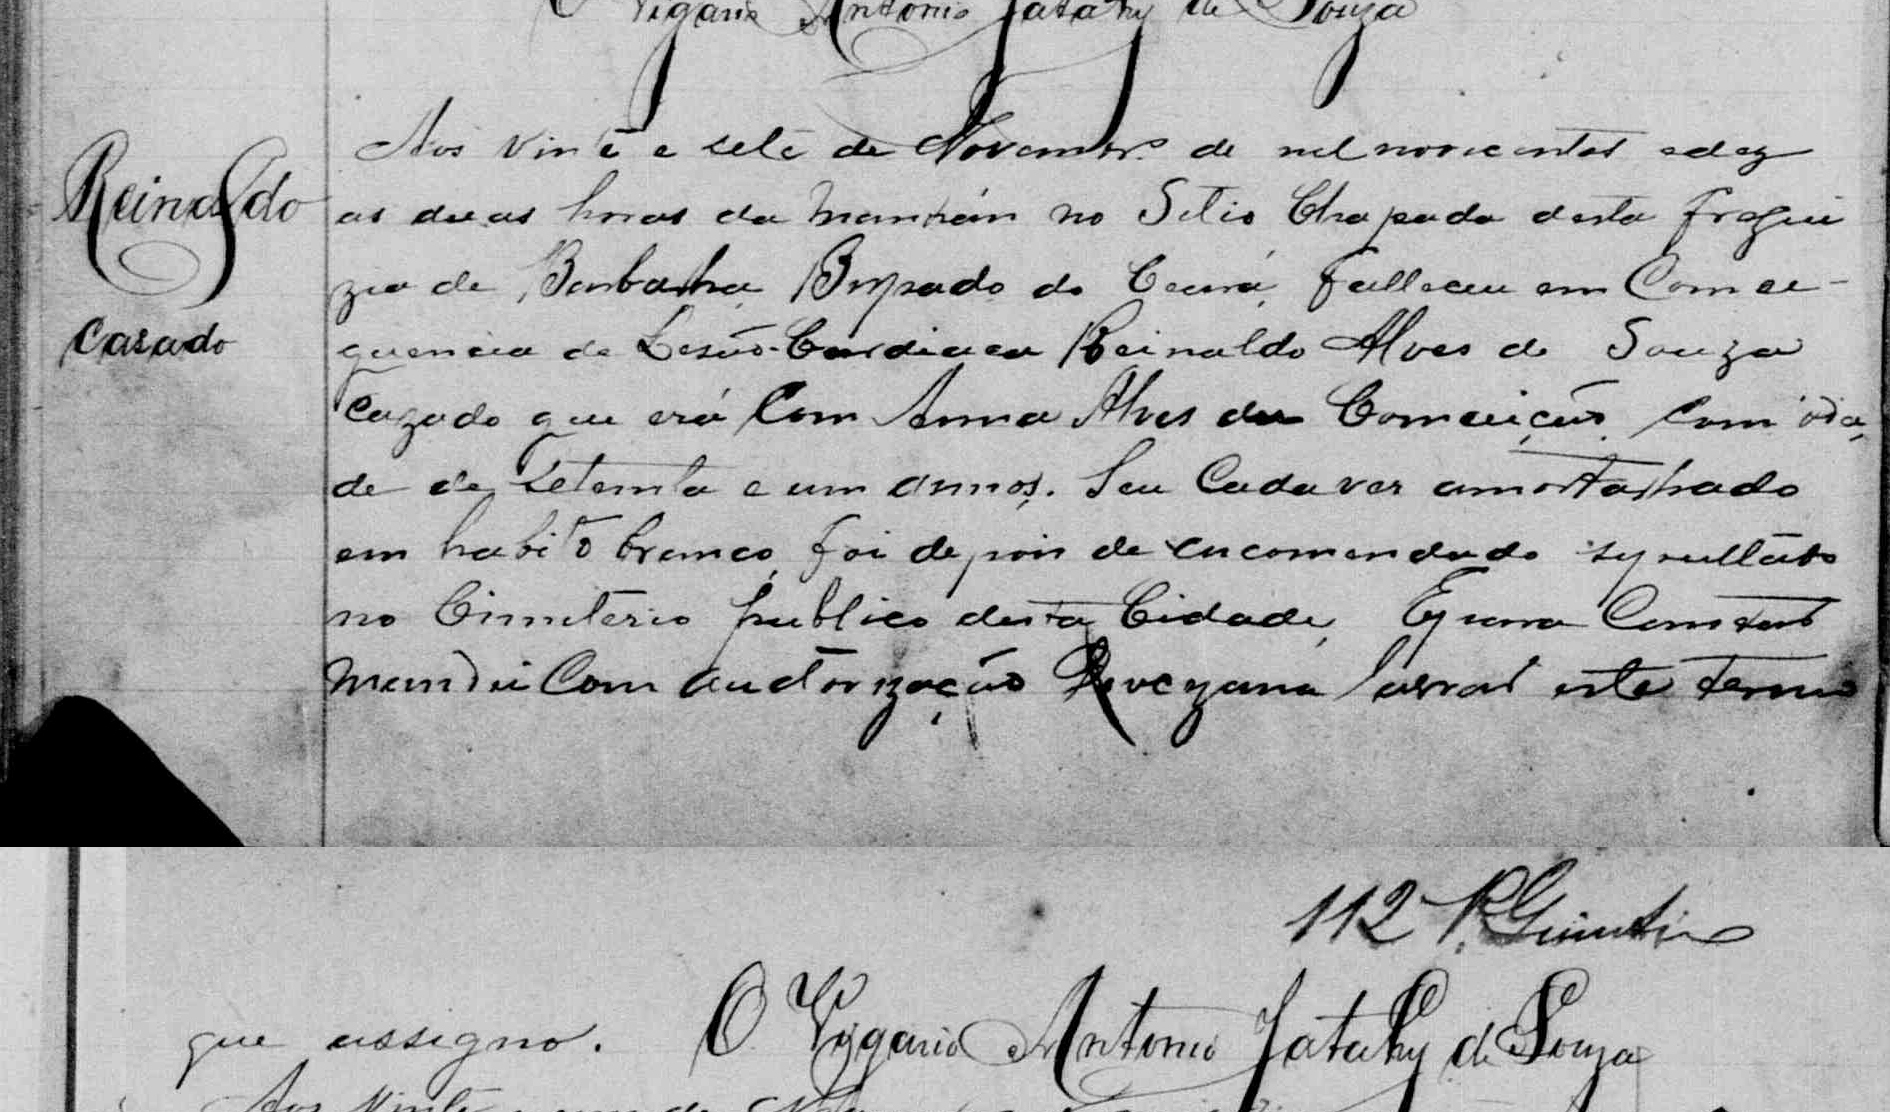 O Vigario Antonio Jatahy de Souza
Aos vinte e sete de Novembrº de mil novecentos e dez
Reinaldo
as duas horas da manhán no Sitio Chapada desta fregui
zia de Barbalha, Bispado do Ceará, falleceu em Conce-
Casado
quencia de Lesão-Cardiaca Reinaldo Alves de Souza
Cazado que erá Com Anna Alves da Conceição, Com ida,
de de setenta e um annos. Seu Cadaver amortalhado
em habito branco, foi depois de encomendado sepultado
no Cimiterio publico desta Cidade, E para Constar
mandei Com autorização lavrar este termo
112
que assigno. O Vigario Antonio Jatahy de Souza